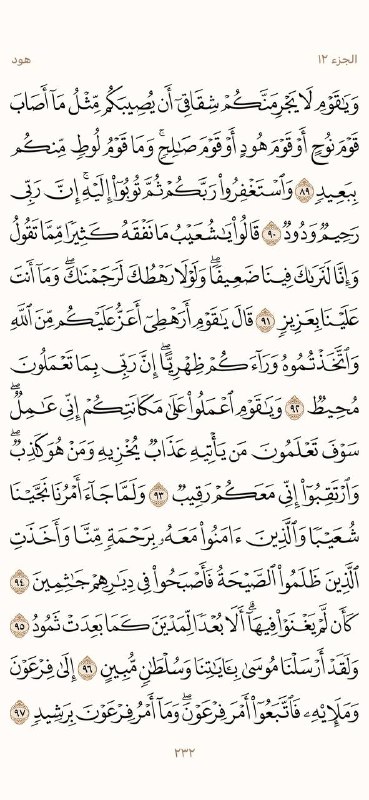 الجزء ١٢
هود
وَيَٰقَوْمِ لَا يَجْرِمَنَّكُمْ شِقَاقِىٓ أَن يُصِيبَكُم مِّثْلُ مَآ أَصَابَ
قَوْمَ نُوحٍ أَوْ قَوْمَ هُودٍ أَوْ قَوْمَ صَٰلِحٍ ۚ وَمَا قَوْمُ لُوطٍ مِّنكُم
بِبَعِيدٍ ٨٩ وَٱسْتَغْفِرُوا۟ رَبَّكُمْ ثُمَّ تُوبُوٓا۟ إِلَيْهِ ۚ إِنَّ رَبِّى
رَحِيمٌ وَدُودٌ ٩٠ قَالُوا۟ يَٰشُعَيْبُ مَا نَفْقَهُ كَثِيرًا مِّمَّا تَقُولُ
وَإِنَّا لَنَرَىٰكَ فِينَا ضَعِيفًا ۖ وَلَوْلَا رَهْطُكَ لَرَجَمْنَٰكَ ۖ وَمَآ أَنتَ
عَلَيْنَا بِعَزِيزٍ ٩١ قَالَ يَٰقَوْمِ أَرَهْطِىٓ أَعَزُّ عَلَيْكُم مِّنَ ٱللَّهِ
وَٱتَّخَذْتُمُوهُ وَرَآءَكُمْ ظِهْرِيًّا ۖ إِنَّ رَبِّى بِمَا تَعْمَلُونَ
مُحِيطٌ ٩٢ وَيَٰقَوْمِ ٱعْمَلُوا۟ عَلَىٰ مَكَانَتِكُمْ إِنِّى عَٰمِلٌ ۖ
سَوْفَ تَعْلَمُونَ مَن يَأْتِيهِ عَذَابٌ يُخْزِيهِ وَمَنْ هُوَ كَٰذِبٌ ۖ
وَٱرْتَقِبُوٓا۟ إِنِّى مَعَكُمْ رَقِيبٌ ٩٣ وَلَمَّا جَآءَ أَمْرُنَا نَجَّيْنَا
شُعَيْبًا وَٱلَّذِينَ ءَامَنُوا۟ مَعَهُۥ بِرَحْمَةٍ مِّنَّا وَأَخَذَتِ
ٱلَّذِينَ ظَلَمُوا۟ ٱلصَّيْحَةُ فَأَصْبَحُوا۟ فِى دِيَٰرِهِمْ جَٰثِمِينَ ٩٤
كَأَن لَّمْ يَغْنَوْا۟ فِيهَآ ۗ أَلَا بُعْدًا لِّمَدْيَنَ كَمَا بَعِدَتْ ثَمُودُ ٩٥
وَلَقَدْ أَرْسَلْنَا مُوسَىٰ بِـَٔايَٰتِنَا وَسُلْطَٰنٍ مُّبِينٍ ٩٦ إِلَىٰ فِرْعَوْنَ
وَمَلَإِي۟هِۦ فَٱتَّبَعُوٓا۟ أَمْرَ فِرْعَوْنَ ۖ وَمَآ أَمْرُ فِرْعَوْنَ بِرَشِيدٍ ٩٧
٢٣٢